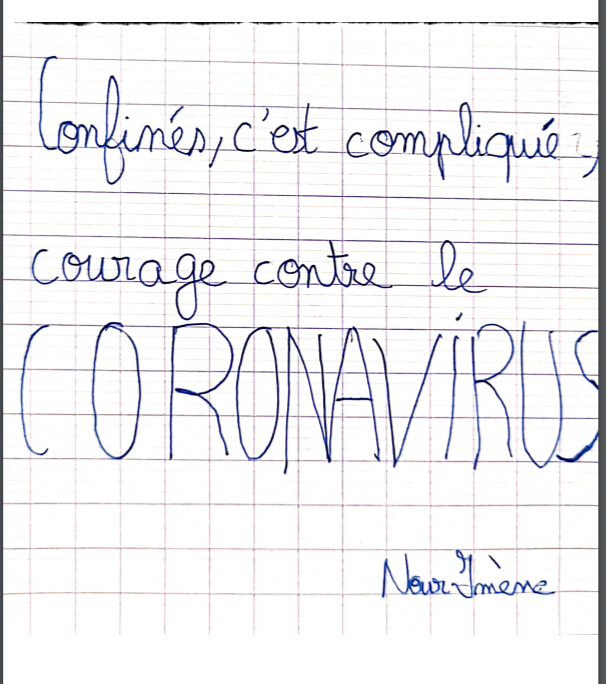 Confinés, c'est compliqué,
courage contre le
CORONAVIRUS
Nour-Imène